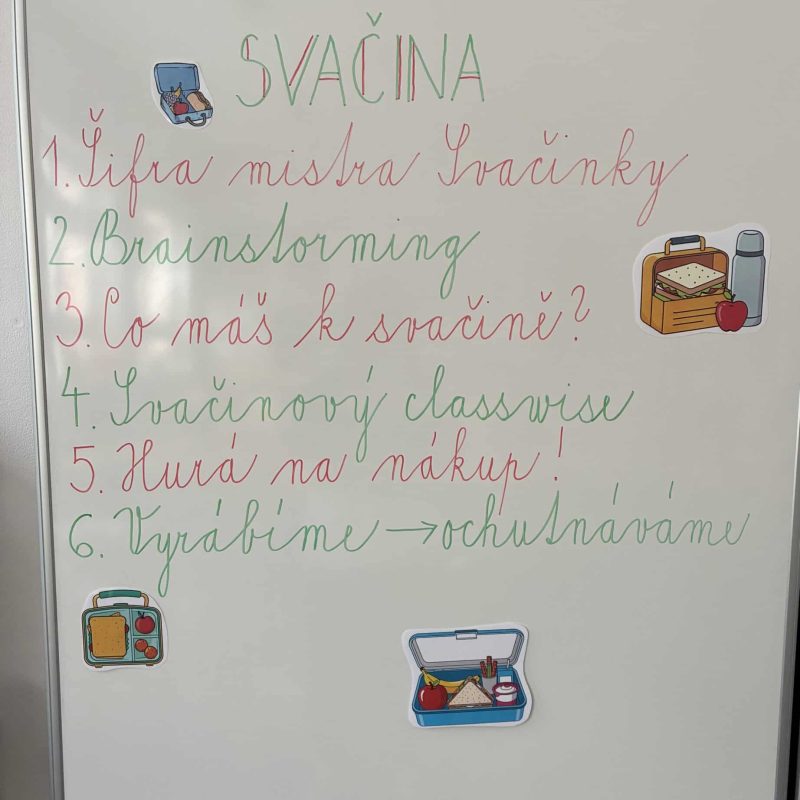 SVAČINA
1. Šifra mistra Svačinky
2. Brainstorming
3. Co máš k svačině?
4. Svačinový classwise
5. Hurá na nákup!
6. Vyrábíme → ochutnáváme